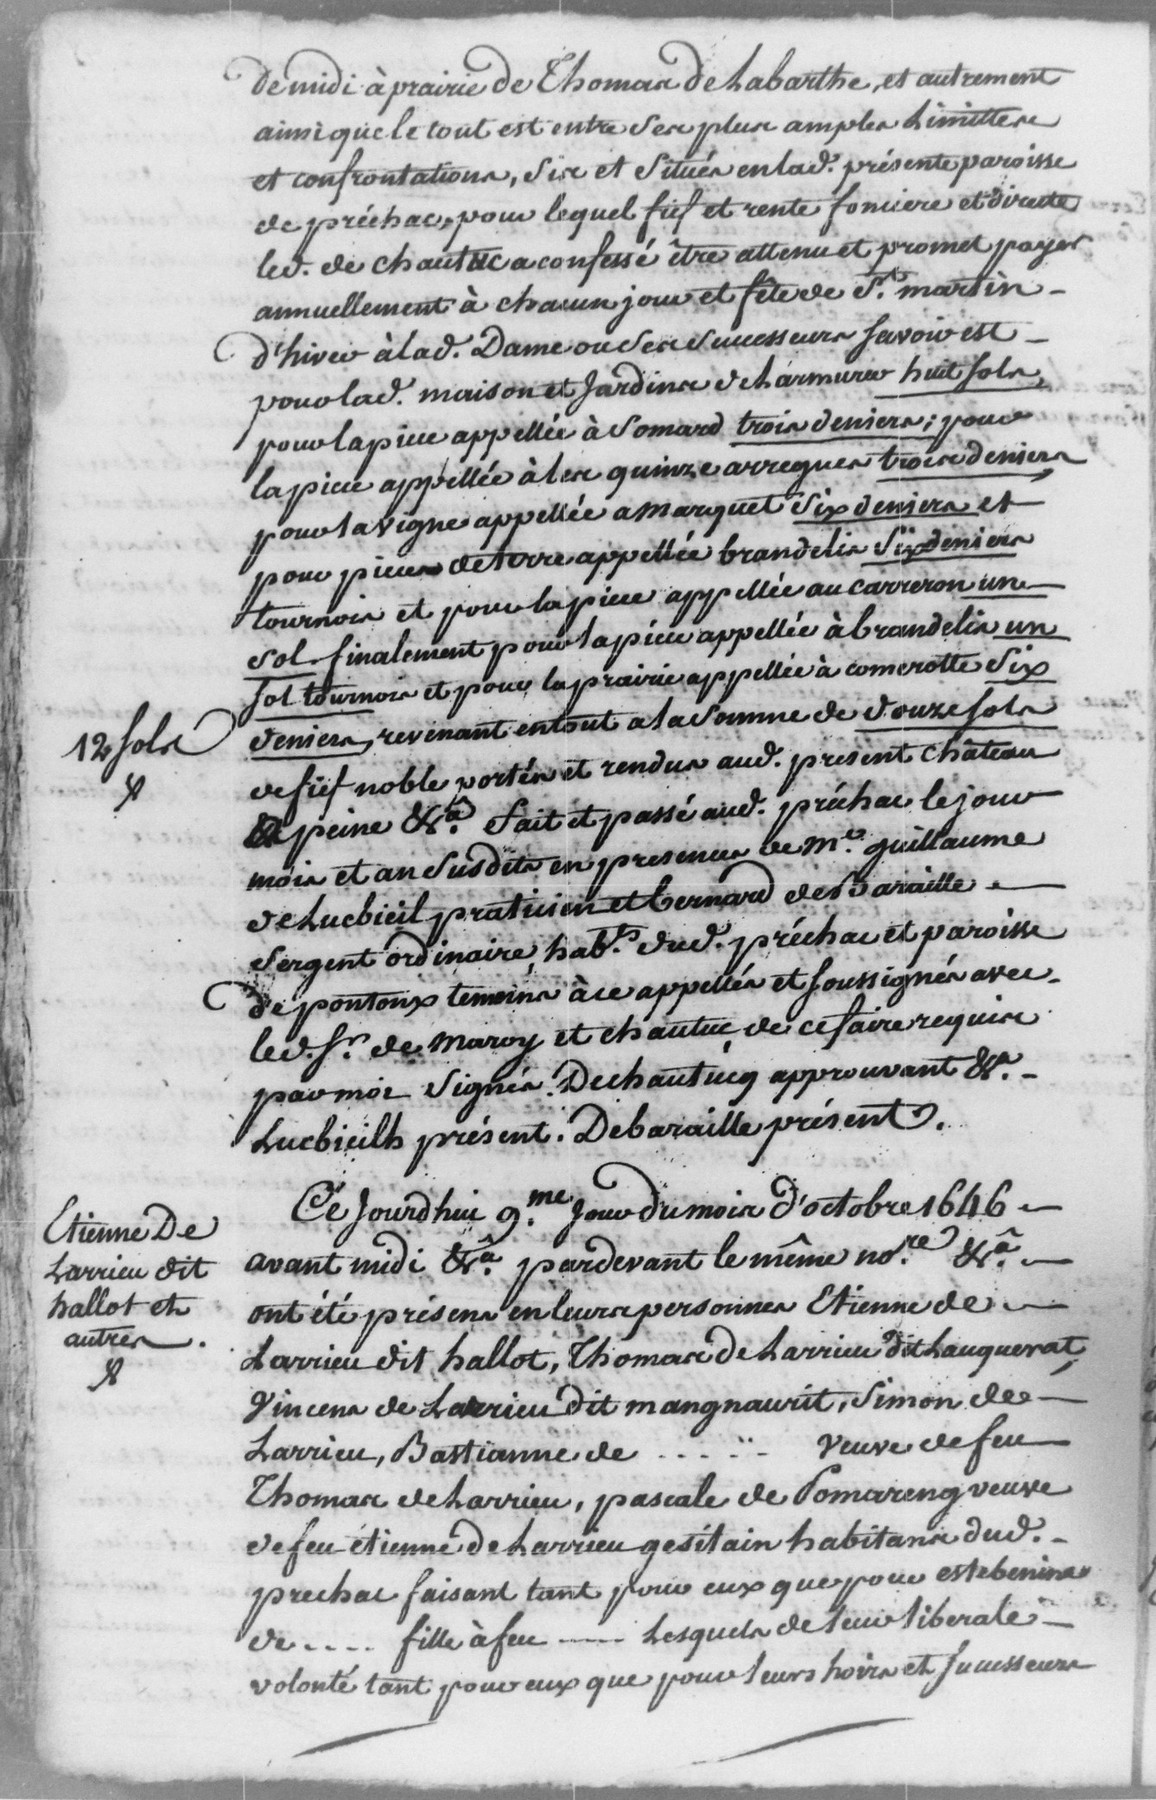 de midi à prairie de Thomas de Labarthe, et autrement
ainsi que le tout est entre ses plus amples Limittes
et confrontations, Sis et Situés en lad. présente paroisse
de préchac, pour lequel fief et rente fonciere et directe
led. de chautuc a confessé être attenu et promet payer
annuellement à chacun jour et fête de St. martin
d'hiver à lad. Dame ou Ses Successeurs Savoir est
pour lad. maison et Jardins de harmurer huit Sols,
pour la piece appellée à Somard trois deniers; pour
la piece appellée à les quinze arregues trois deniers
pour la vigne appellée a marquet Six deniers et
pour pieces de terre appellée brandelis Six deniers
tournois et pour la piece appellée au carreron un
Sol finalement pour la piéce appellée à brandelis un
Sol tournois et pour la prairie appellée à comerotte Six
deniers, revenant en tout a la Somme de douze Sols
12 Sols
de fief noble portés et rendus aud. present château
à peine &a. fait et passé aud. préchac le jour
mois et an Susdits en presences de Me. guillaume
de Lucbieil praticien et bernard de baraille
Sergent ordinaire, habts. dud. préchac et paroisse
de pontonx temoins à ce appellés et Soussignés avec
led. Sr. de maroy et chautuc, de ce faire requis
par moi Signés. Dechautucq approuvant &a.
Lucbieilh présent. Debaraille présent.
Etienne De
Larrieu dit
hallot et
autres.
Cé Jourdhui 9.me Jour du mois d'octobre 1646
avant midi &a. pardevant le même no.re &a.
ont été présens en leurs personnes Etienne de
Larrieu dit hallot, Thomas de Larrieu dit Lauguerat,
Vincens de Larrieu dit mangnaurit, Simon de
Larrieu, Bastianne de ..... veuve de feu
Thomas de Larrieu, pascale de Pomarenq veuve
de feu étienne de Larrieu gesitain habitans dud.
prechac faisant tant pour eux que pour estebenine
de .... fille à feu .... Lesquels de leur liberale
volonté tant pour eux que pour leurs hoirs et Successeurs